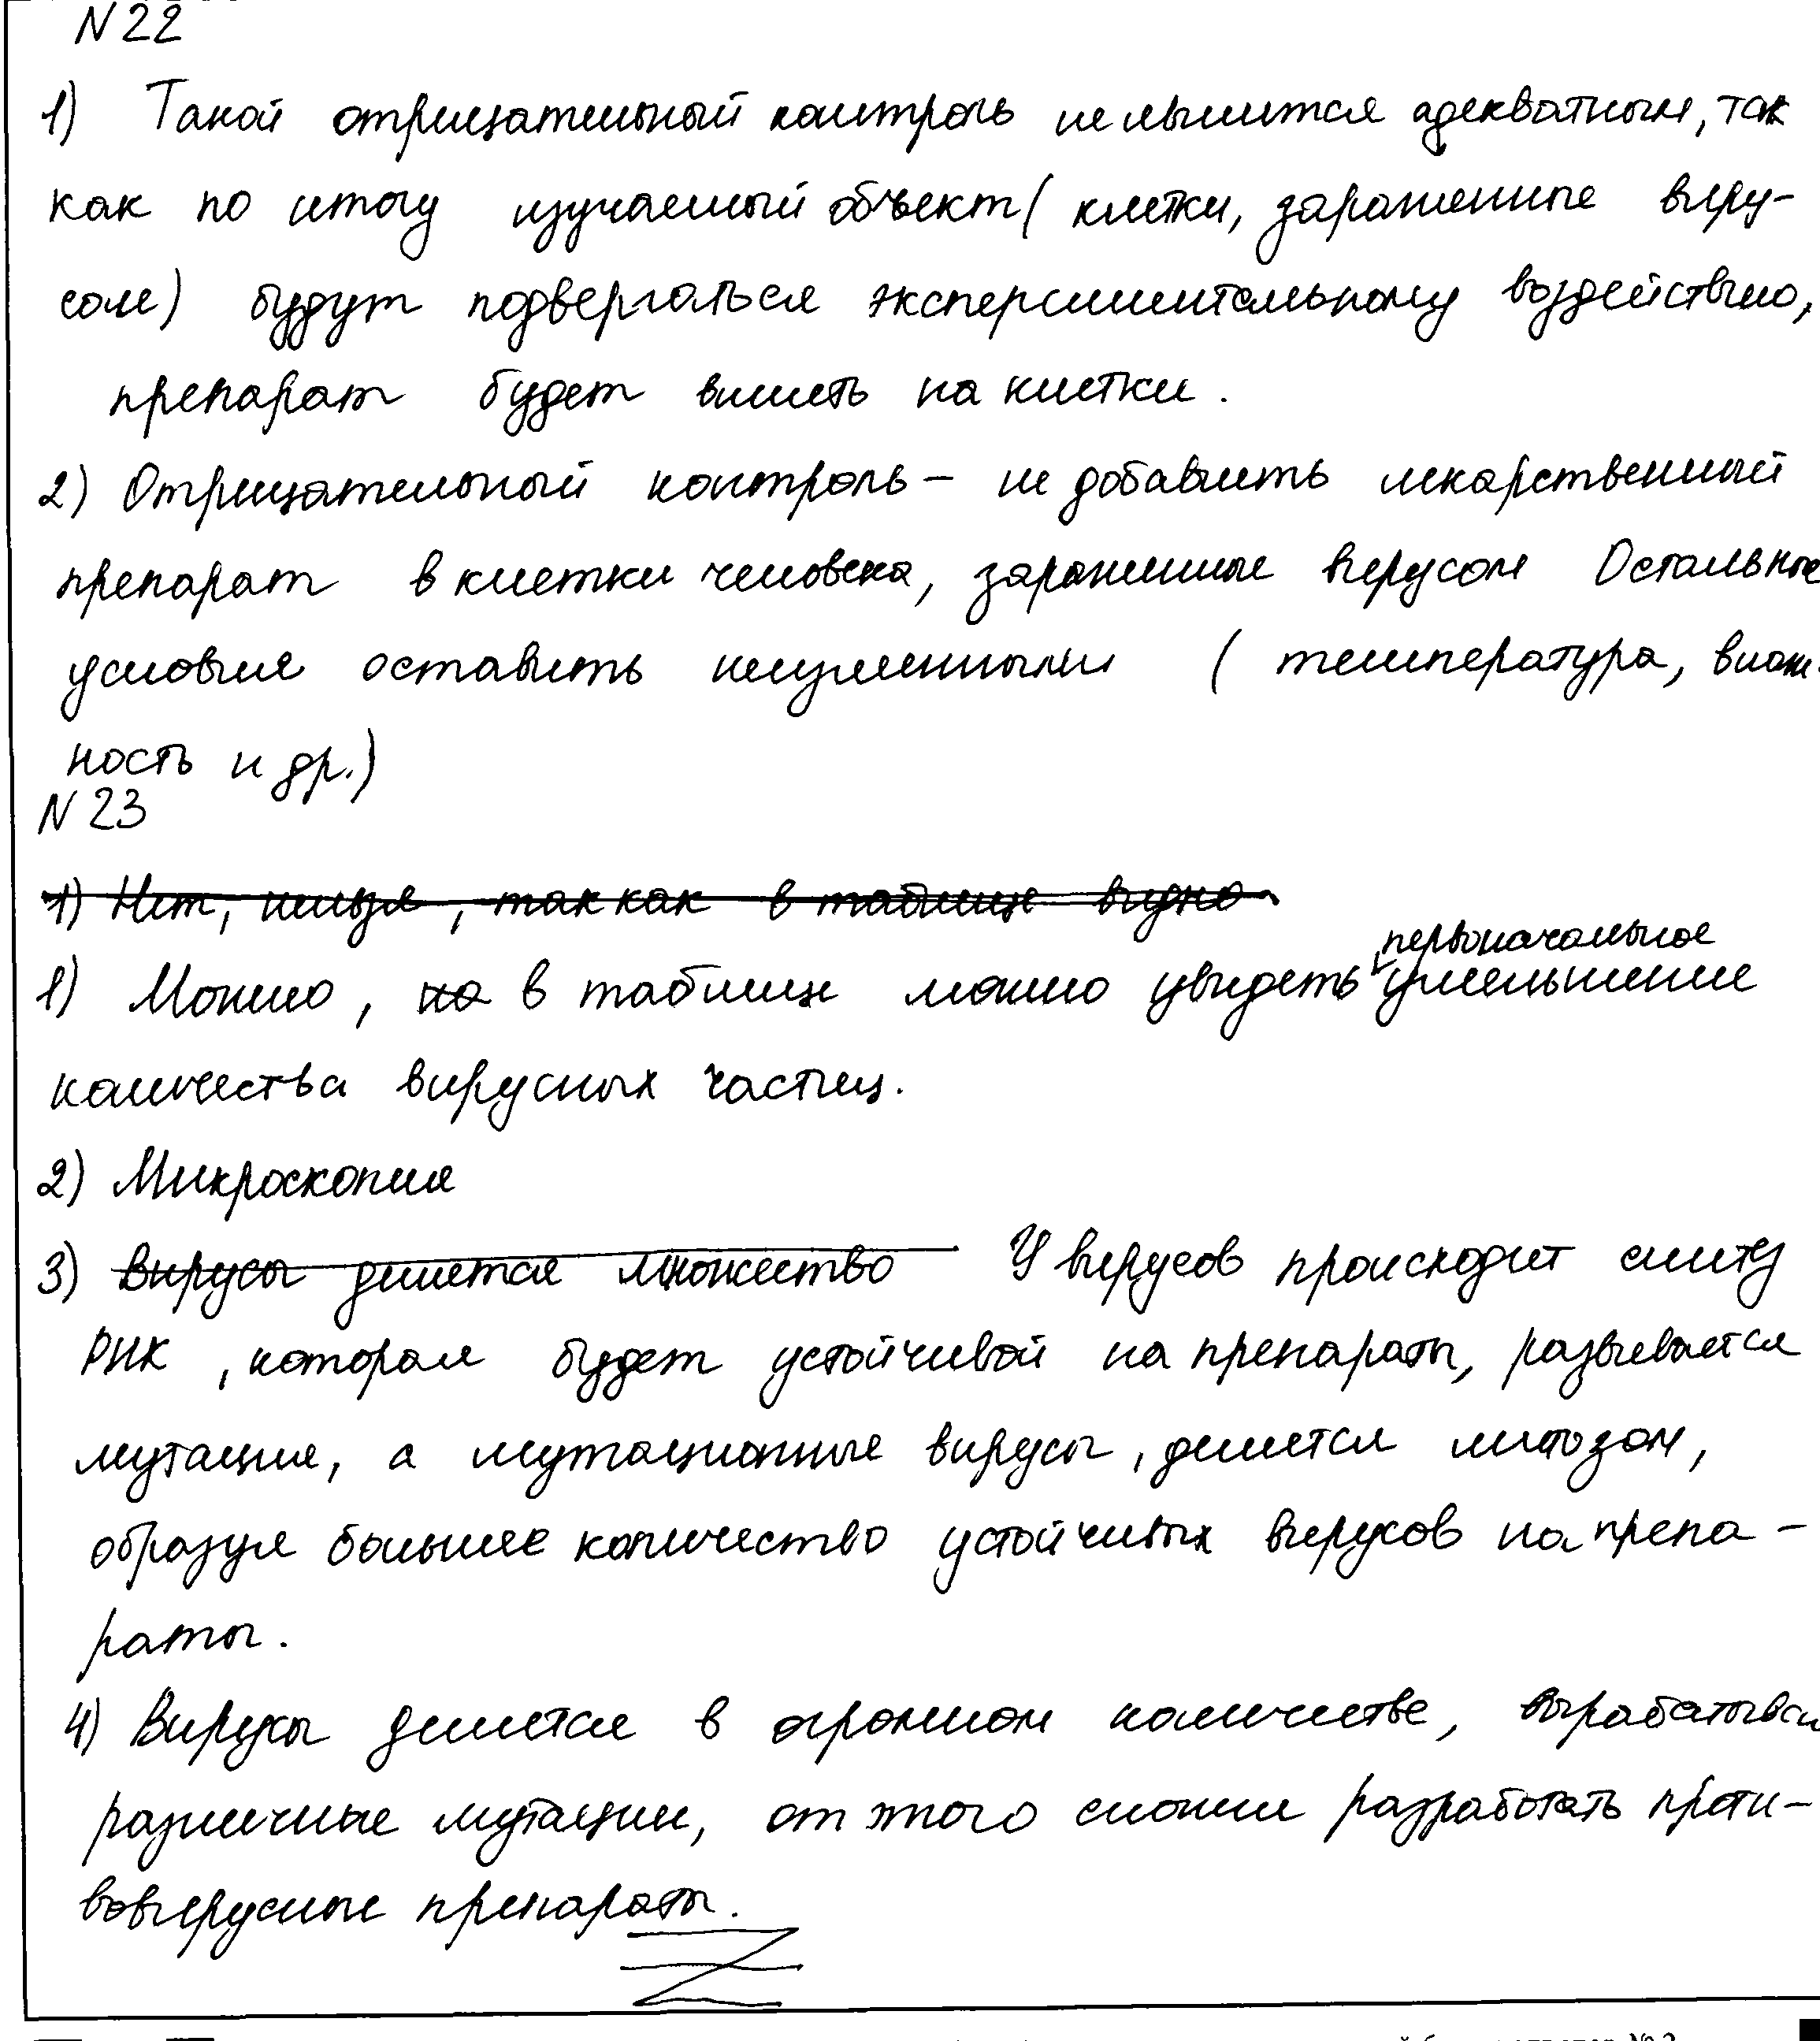 N 22
1) Такой отрицательный контроль не явлится адекватным, так
как по итогу изучаемый объект (клетки, зараженные виру-
сом) будут подвергаться экспериментальному воздействию,
препарат будет влиять на клетки.
2) Отрицательный контроль - не добавлять лекарственный
препарат в клетки человека, зараженные вирусом Остальные
условия оставить неизменными (температура, влаж-
ность и др.)
N 23
1) Нет, нельзя, так как в таблице видно
первоначальное
1) Можно, на в таблице можно увидеть уменьшение
количества вирусных частиц.
2) Микроскопия
3) Вирусы делятся множество У вирусов происходит синтез
РНК, которая будет устойчивой на препараты, развивается
мутация, а мутационные вирусы, делятся митозом,
образуя большее количество устойчивых вирусов на препа-
раты.
4) Вирусы делятся в огромном количестве, вырабатывая
различные мутации, от этого сложнее разработать проти-
вовирусные препараты.